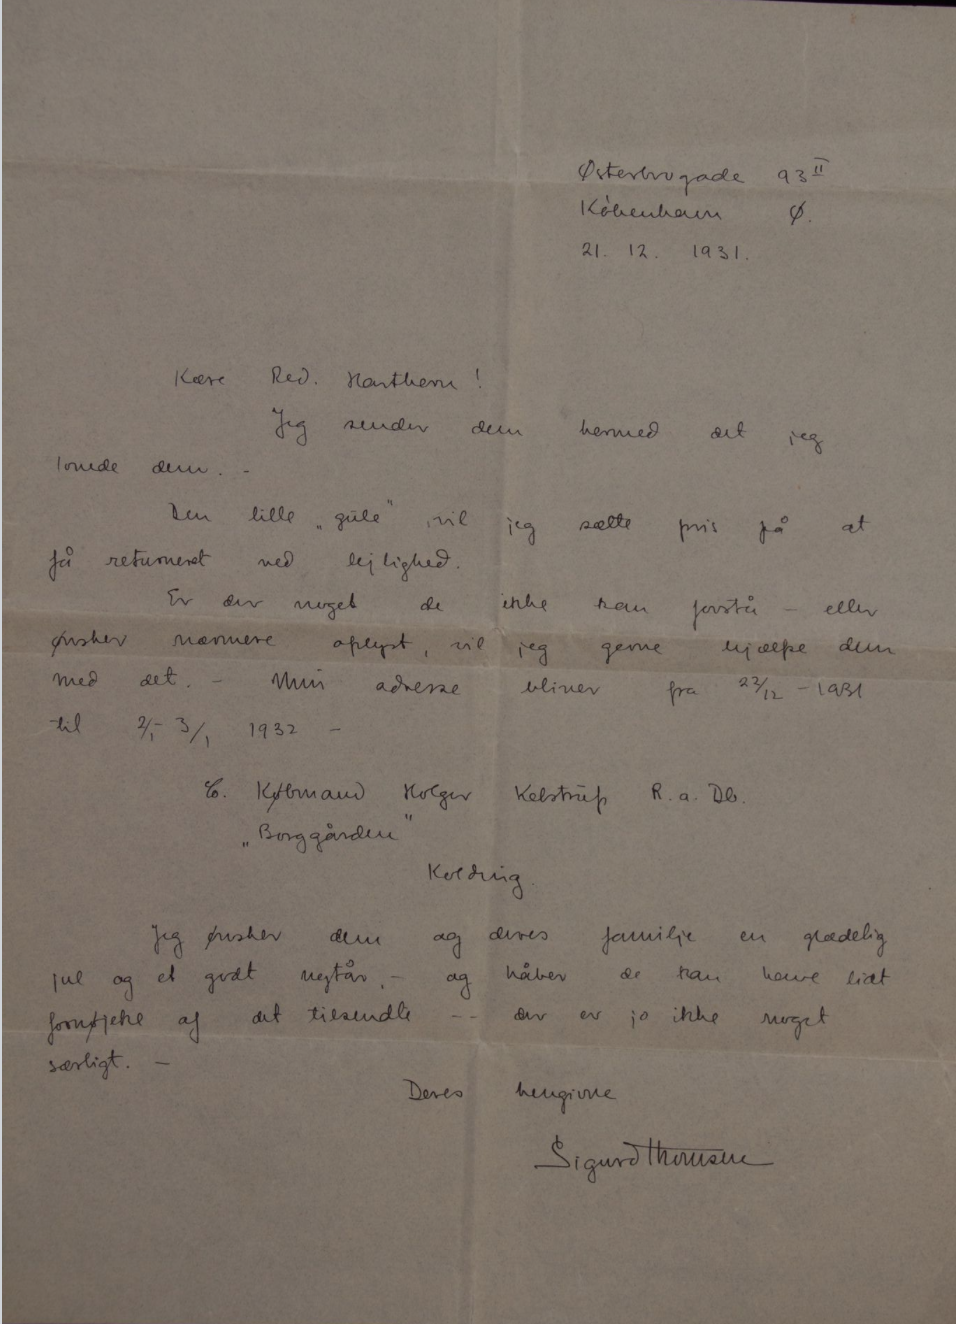 Østerbrogade 93 II
København Ø.
21. 12. 1931.
Kære Red. Harthern!
Jeg sender dem hermed det jeg
lovede dem. -
Den lille „gule" , vil jeg sætte pris på at
få returneret ved lejlighed.
Er der noget de ikke kan forstå - eller
ønsker nærmere oplyst, vil jeg gerne hjælpe dem
med det. - Min adresse bliver fra 22/12 - 1931
til 2/1 - 3/1 1932 -
C. Købmand Holger Kelstrup R. a. Db.
„Borggården"
Kolding.
Jeg ønsker dem og deres familje en glædelig
jul og et godt nytår, - og håber de kan have lidt
fornøjelse af det tilsendte -- der er jo ikke noget
særligt. -
Deres hengivne
Sigurd Thomsen